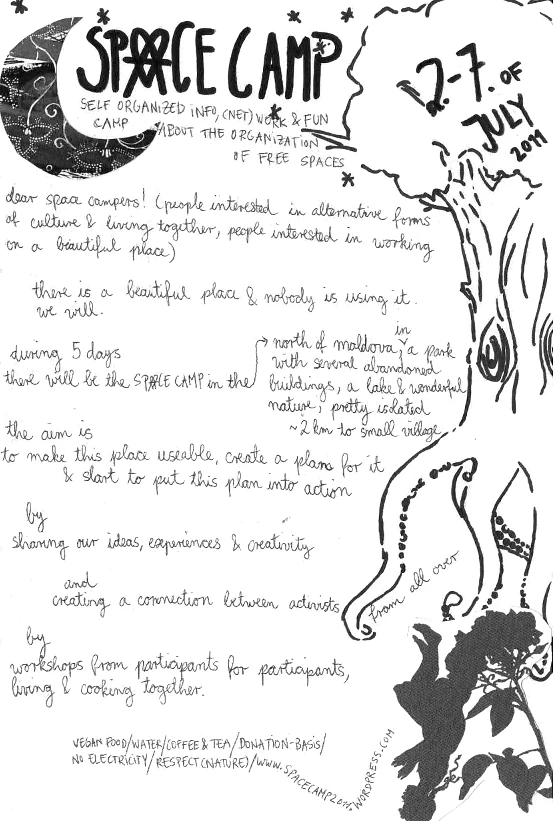 SPACE CAMP
SELF ORGANIZED INFO, (NET)WORK & FUN
CAMP ABOUT THE ORGANIZATION
OF FREE SPACES
2.-7. OF
JULY
2011
dear space campers! (people interested in alternative forms
of culture & living together, people interested in working
on a beautiful place)
there is a beautiful place & nobody is using it.
we will.
during 5 days
there will be the SPACE CAMP in the
north of maldova, in a park
with several abandoned
buildings, a lake & wonderful
nature, pretty isolated
~2 km to small village
the aim is
to make this place useable, create a plan for it
& start to put this plan into action
by
sharing our ideas, experiences & creativity
and
creating a connection between activists
from all over
by
workshops from participants for participants,
living & cooking together.
VEGAN FOOD/WATER/COFFEE & TEA/DONATION-BASIS/
NO ELECTRICITY/RESPECT(NATURE)/WWW.SPACECAMP2011.WORDPRESS.COM